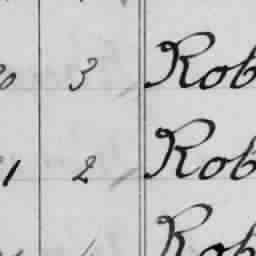 0 3 Rob
1 2 Rob
Rob